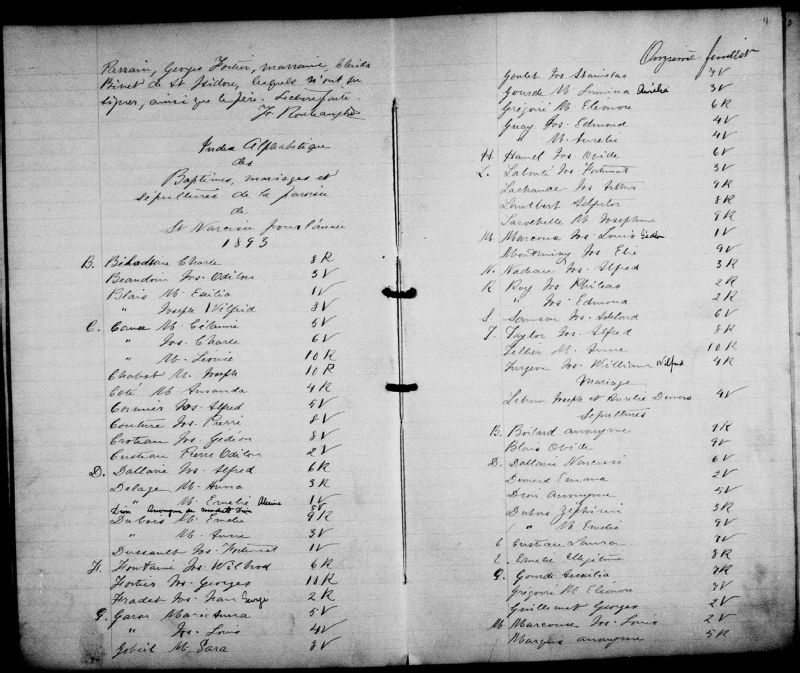 Parrain, Georges Fortier, marraine, Clerida
Binet de St Isidore, lesquels n'ont su
signer, ainsi que le père. Lecture faite.
Index Alphabétique
des
Baptêmes, mariages et
sépultures de la paroisse
de
St Narcisse pour l'année
1893
B. Charle 8 R
Beaudoin Jos. Odilon 3 V
Blais M. Exilia 1 V
" Joseph Wilfrid 8 V
C. M. Célanire 5 V
" Jos. Charle 6 V
" M. Léonie 10 R
Chabot M. Joseph 10 R
Coté M. Amanda 4 R
Cormier Jos. Alfred 5 V
Couture Jos. Pierre 8 V
Croteau Jos. Gédéon 8 V
Pierre Odilon 2 V
D. Dallaire Jos. Alfred 6 R
Delage M. Anna 3 R
" M. Emelie 1 V
Dion Anonyme de Dion 5 V
Dubois M. Emelie 9 R
" M. Anne 3 V
Dussault Jos. Fortunat 1 V
F. Fontaine Jos. Wilbrod 6 R
Fortier Jos. Georges 11 R
Fradet Jos. Jean George 2 R
G. Garon Marie Anna 5 V
" Jos. Louis 4 V
Gobeil M. Sara 3 V
Onzième feuillet
Goulet Jos Stanislas 7 V
Gourde M. Lumina Aurélia 3 V
Grégoire M. Eléonore 6 R
Guay Jos. Edmund 4 V
" M. Aurelie 4 V
H. Hamel Jos. Ovide 6 V
L. Labonté Jos. Fortunat 3 V
Lachance Jos Arthur 9 R
Lambert 8 R
Larochelle M. Josephine 9 R
M. Marcoux Jos. Louis Gédéon 1 V
Montminy Jos. Elie 9 V
N. Nadeau Jos. Alfred 3 R
R Roy Jos. Phileas 2 R
" Jos. Edmond 2 R
S. Samson Jos. Adélard 6 V
T. Taylor Jos. Alfred 8 R
Tellier M. Anne 10 R
Turgeon Jos. William Wilfrid 4 R
Mariage
Lebrun Joseph et Aurelie Demers 4 V
Sépultures
B. Boilard anonyme 9 R
Blais Ovide 9 V
D. Dallaire Narcisse 6 V
Demers Emma 2 V
Dion Anonyme 5 V
Dubois Zéphirin 3 R
" M. Emelie 9 V
C Laura 7 V
E. Emelie Illegitime 8 R
G. Gourde Auxilia 7 R
Grégoire M. Eléonore 7 V
Guillemet Georges 2 V
M. Marcoux Jos. Louis 2 V
Marquis anonyme 5 R